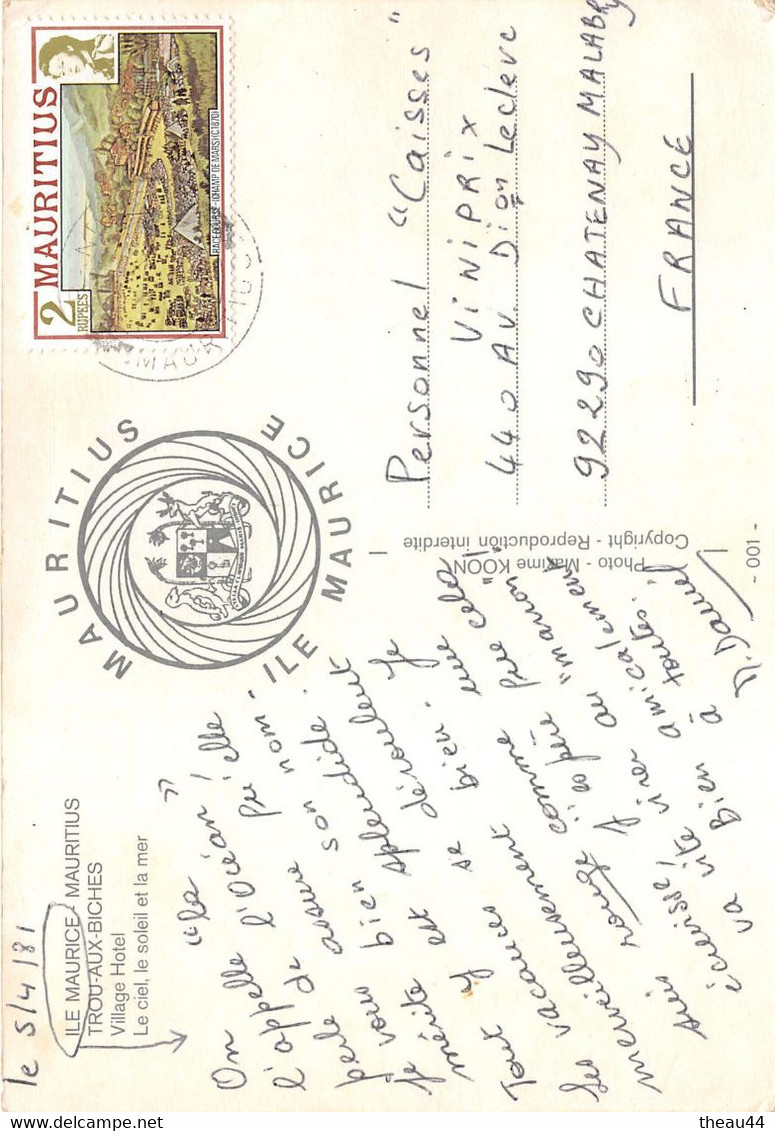 le 5/4/81
ILE MAURICE - MAURITIUS
TROU-AUX-BICHES
Village Hotel
Le ciel, le soleil et la mer
"la
On l'appelle
perle de l'Océan" !
Je vous assure qu'elle
mérite bien son nom.
Tout y est splendide.
Les vacances se déroulent
merveilleusement bien. Je
suis rouge comme une
écrevisse! J'espère que cela
va vite virer au "marron"!
Bien amicalement
à toutes.
D. Daniel
MAURITIUS
ILE MAURICE
Photo - Maxime KOON
Copyright - Reproduction interdite
- 001 -
2
RUPEES
MAURITIUS
RACECOURSE - (CHAMP DE MARS) (C1870)
Personnel "Caisses"
VINIPRIX
440 AV. Dion Leclerc
92290 CHATENAY MALABRY
FRANCE
theau44
delcampe.net